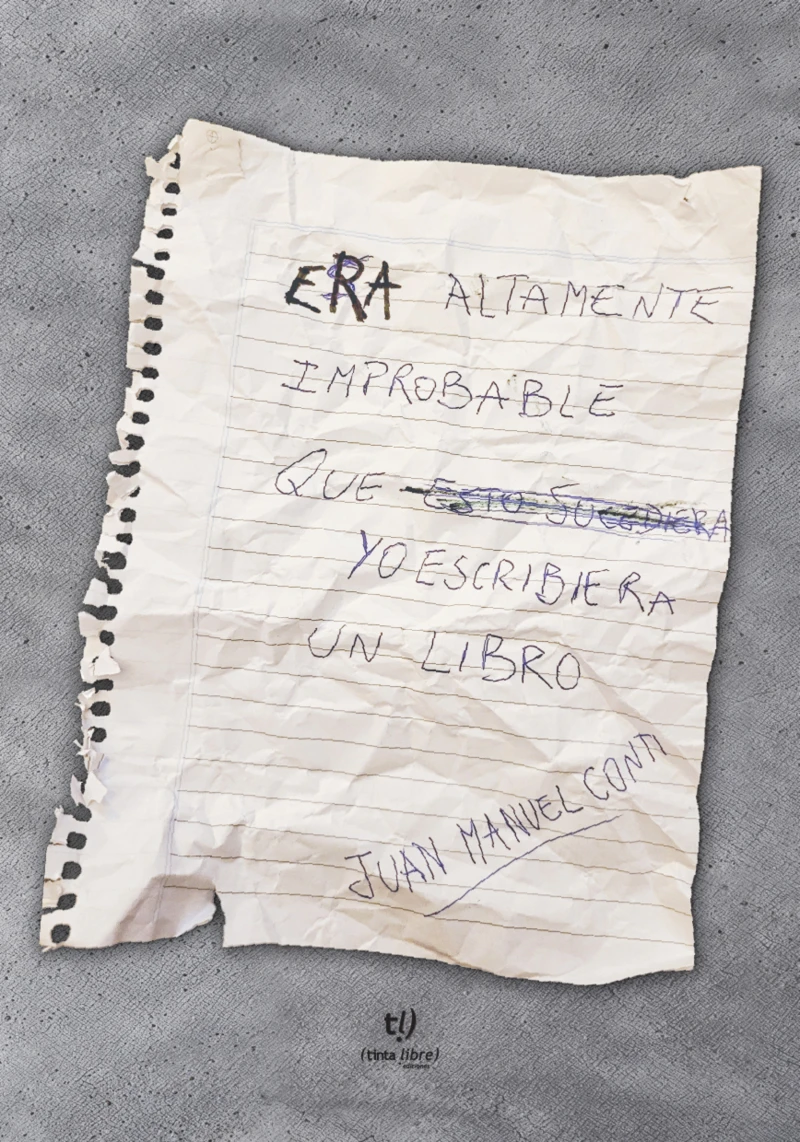 ERA ALTAMENTE
IMPROBABLE
QUE ESTO SUCEDIERA
YO ESCRIBIERA
UN LIBRO
JUAN MANUEL CONTI
t!)
(tinta libre)
ediciones